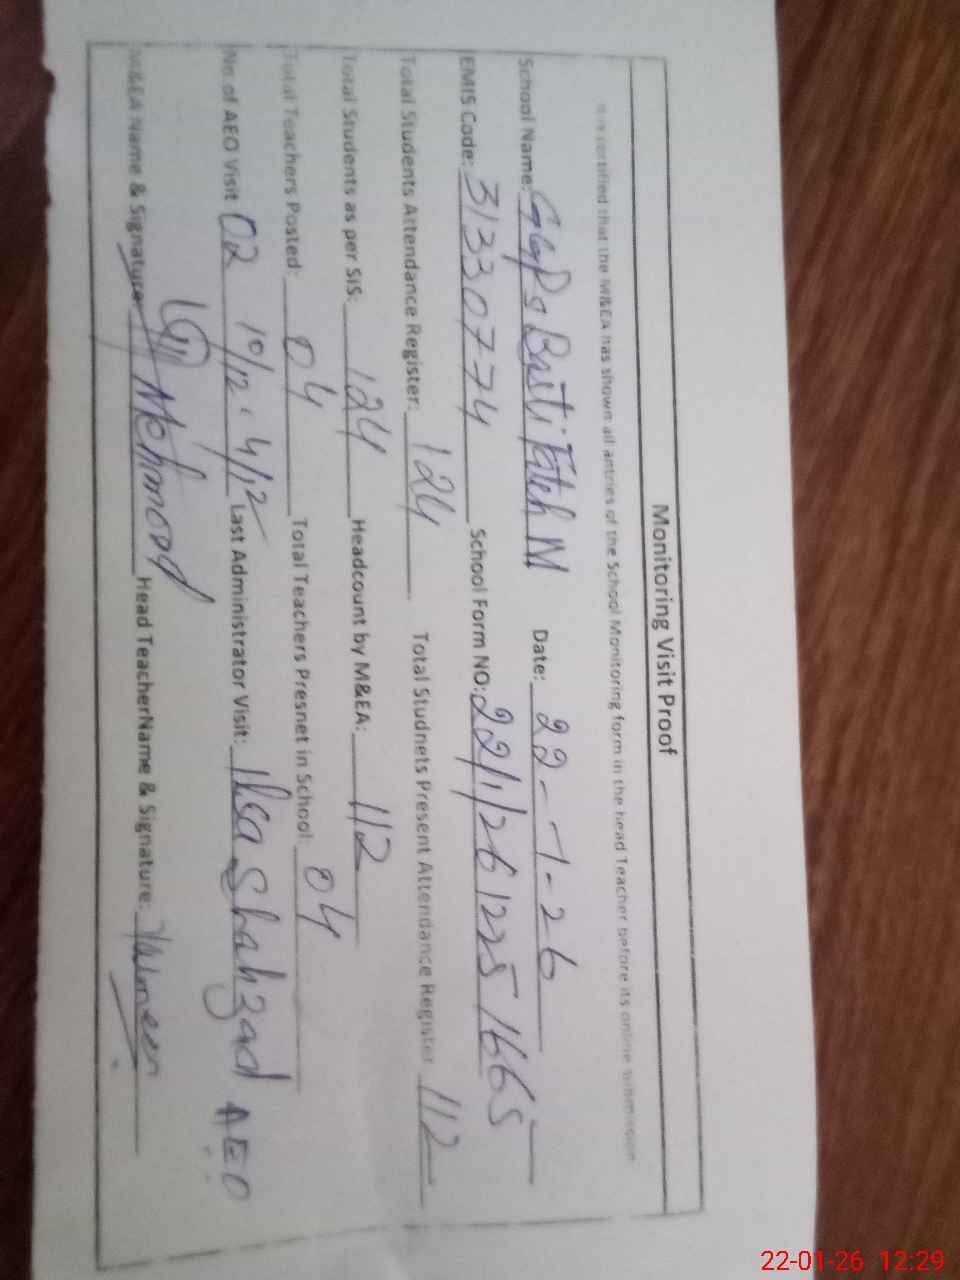 Monitoring Visit Proof
certified that the M&EA has shown all entries of the School Monitoring form in the head Teacher before its online submission
School Name: GGPS Basti Fateh M Date: 22-1-26
EMIS Code: 31330774 School Form NO: 22/1/26 1225 1665
Total Students Attendance Register: 124 Total Studnets Present Attendance Register 112
Total Students as per SIS: 124 Headcount by M&EA: 112
Total Teachers Posted: 04 Total Teachers Presnet in School: 04
No of AEO Visit 02 10/12 - 4/12 Last Administrator Visit: Iksa Shahzad AEO
M&EA Name & Signature: Mehmood Head TeacherName & Signature:
22-01-26 12:29